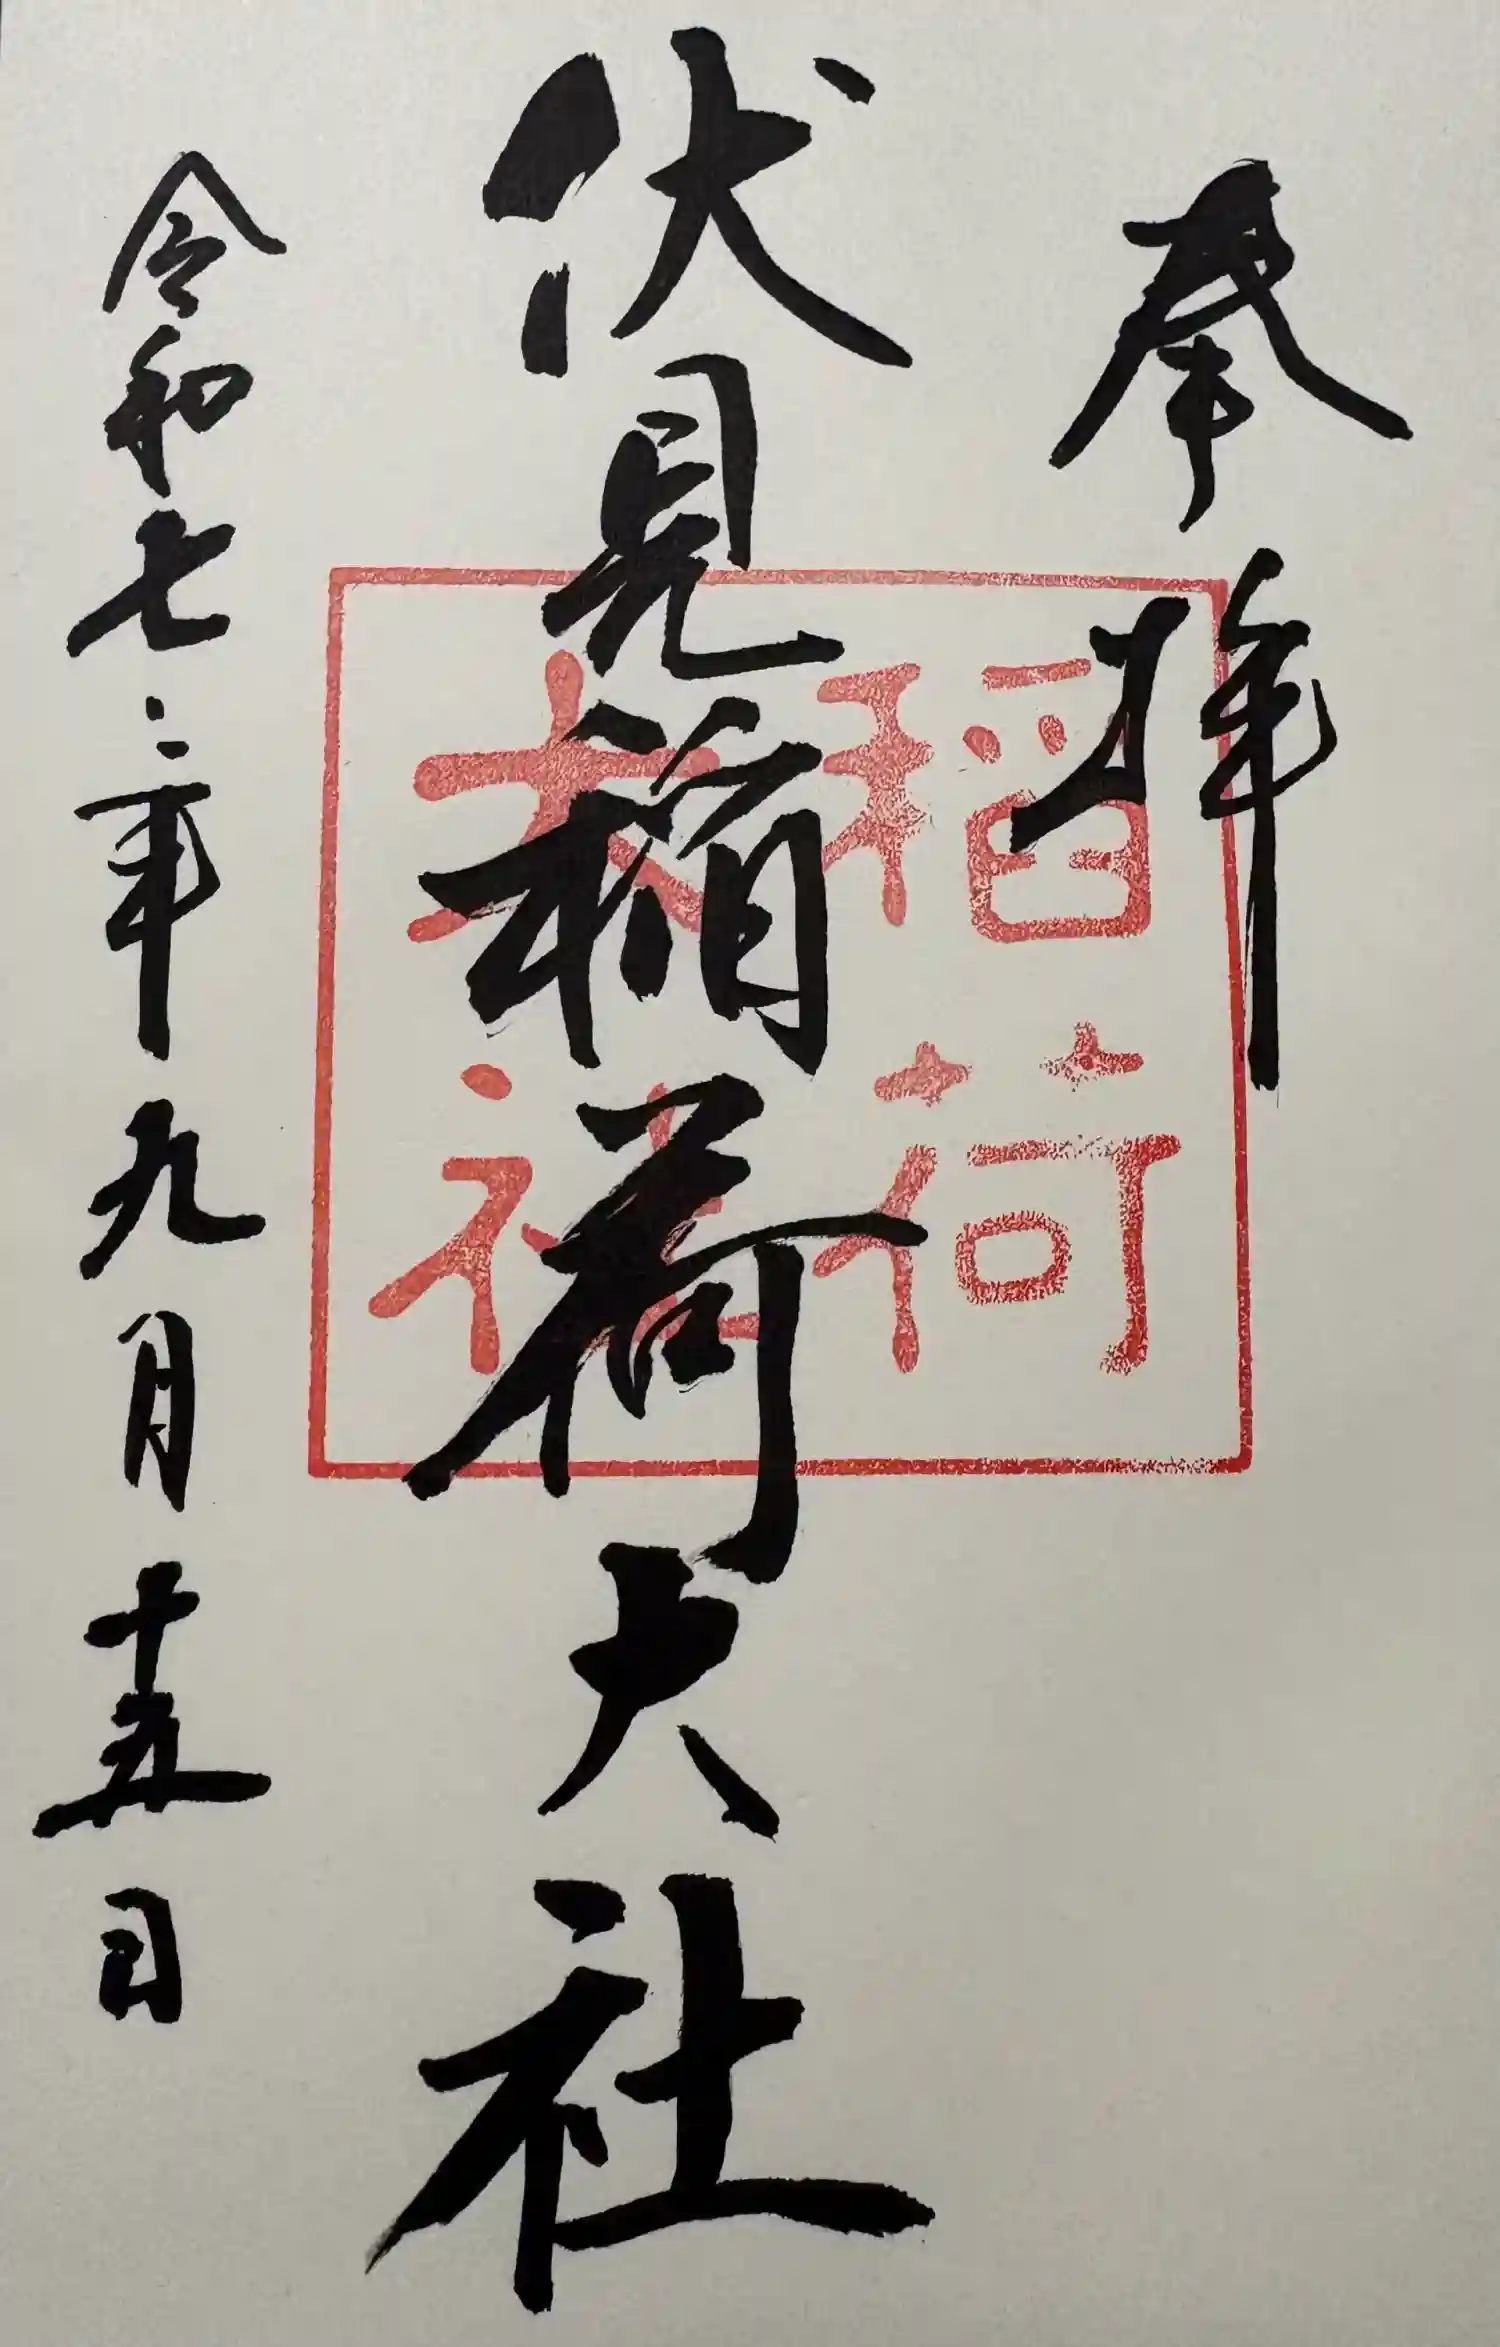 奉拝
伏見稲荷大社
令和七年九月十五日
稲荷
大社